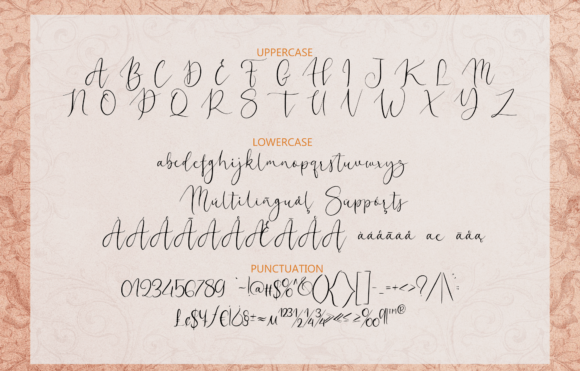 UPPERCASE
A B C D E F G H I J K L M
N O P Q R S T U V W X Y Z
LOWERCASE
abcdefghijklmnopqrstuvwxyz
Multilingual Supports
ÀÁÂÃÄÅÆĀĂĄ àáâãäå æ āăą
PUNCTUATION
0123456789 -!@#$%^&*(){}[]-_=+<>?/|\
£¢$¥/€¿§±≈µ